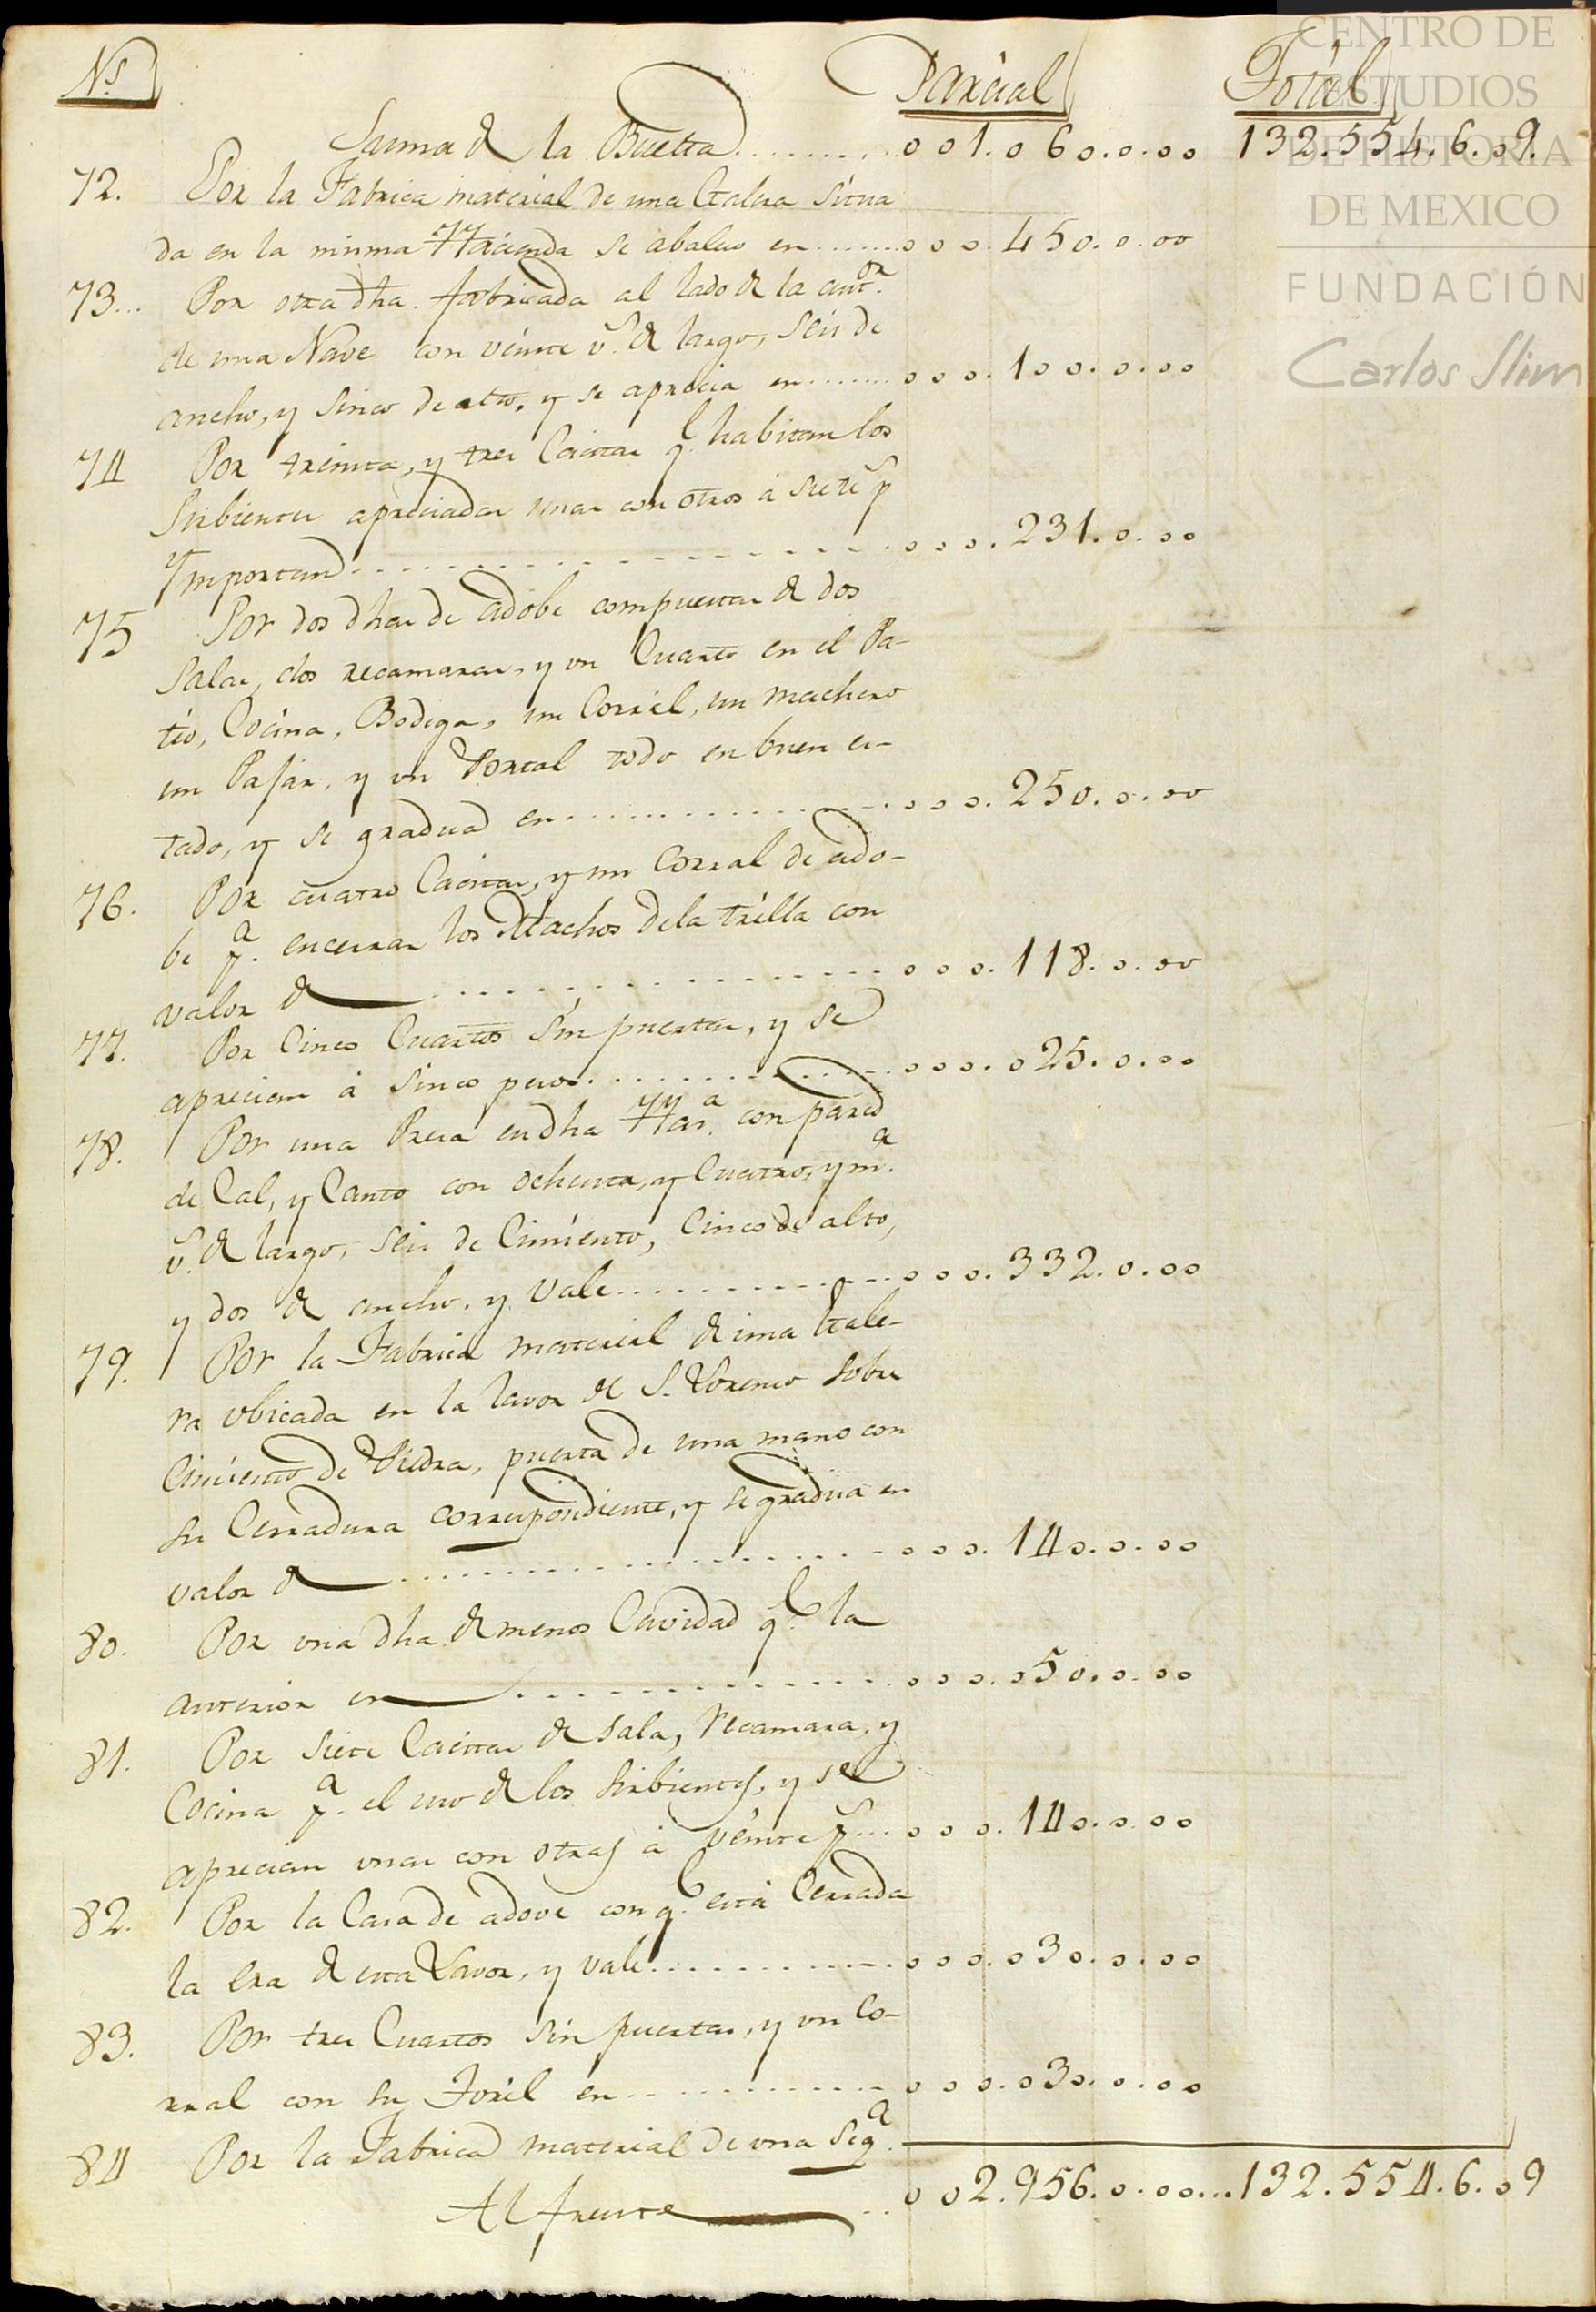 Ns. Parcial Total
Suma de la Buelta........001.060.0.00 132.554.6.09.
72. Por la Fabrica material de una Galera situa
da en la misma Hacienda se abaluo en.......000.450.0.00
73... Por otra dha. fabricada al lado de la antor.
de una Nave con veinte vs. de largo, seis de
ancho, y sinco de alto, y se aprecia en........000.100.0.00
74 Por treinta, y tres Casitas q. habitan los
Sirbientes apreciadas unas con otros á siete ps
Ymportan....................000.231.0.00
75 Por dos dhas de adobe compuestas de dos
Salas, dos recamaras, y un Cuarto en el Pa-
tio, Cocina, Bodega, un Corrál, un machero
un Pajár, y un Portal todo en buen es-
tado, y se gradua en....................000.250.0.00
76. Por cuatro Casitas, y un Corral de ado-
be pa. encerrar los Machos dela trilla con
valor de....................000.118.0.00
77. Por Cinco Cuartos sin puertas, y se
aprecian á sinco pesos....................000.025.0.00
78. Por una Presa en dha Hasa. con pared
de Cal, y Canto con ochenta, y Cuatro, y ma.
vs. de largo, seis de Cimiento, Cinco de alto,
y dos de ancho, y vale....................000.332.0.00
79. Por la Fabrica material de una Gale-
ra vbicada en la lavor de S. Lorenso sobre
Cimiento de Piedra, puerta de una mano con
su Cerradura correspondiente, y se gradua en
valor de....................000.140.0.00
80. Por una dha. de menos Cavidad q. la
anterior en....................000.050.0.00
81. Por siete Casitas de sala, recamara, y
Cocina pa. el uso de los Sirbientes, y se
aprecian unas con otras á veinte ps...000.140.0.00
82. Por la Casa de adove con q. está Cerrada
la Era de esta Lavor, y vale....................000.030.0.00
83. Por tres Cuartos sin puertas, y un Co-
rral con su Toril en....................000.030.0.00
84 Por la Fabrica material de una Sega.
Al frente.. 002.956.0.00...132.554.6.09
CENTRO DE
ESTUDIOS
DE HISTORIA
DE MEXICO
FUNDACIÓN
Carlos Slim